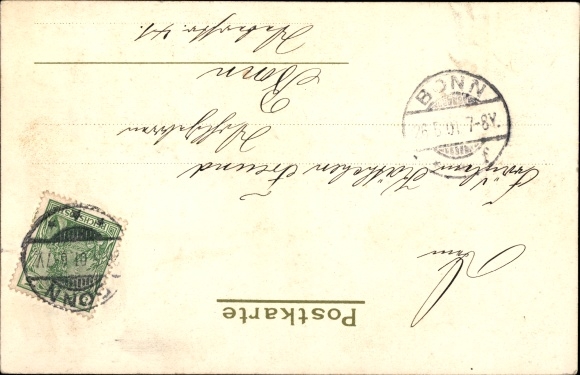 Postkarte
An
Fräulein Käthchen Freund
Wohlgeboren
Bonn
BONN
26.5.01 7-8V.
BONN